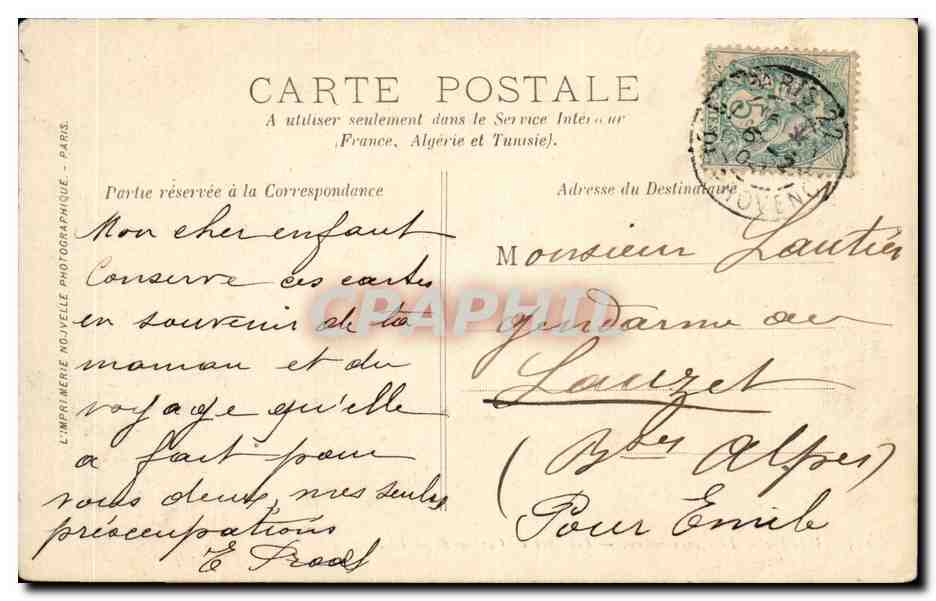 CARTE POSTALE
A utiliser seulement dans le Service Intérieur
(France, Algérie et Tunisie).
Partie réservée à la Correspondance
Mon cher enfant
Conserve ces cartes
en souvenir de ta
maman et du
voyage qu'elle
a fait pour
vous deux, mes seules
préoccupations
E
Adresse du Destinataire
Monsieur Lautier
gendarme au
Lauzet
(Bses Alpes)
Pour Emile
PARIS 22
L'IMPRIMERIE NOUVELLE PHOTOGRAPHIQUE. - PARIS.
CPAPHIL